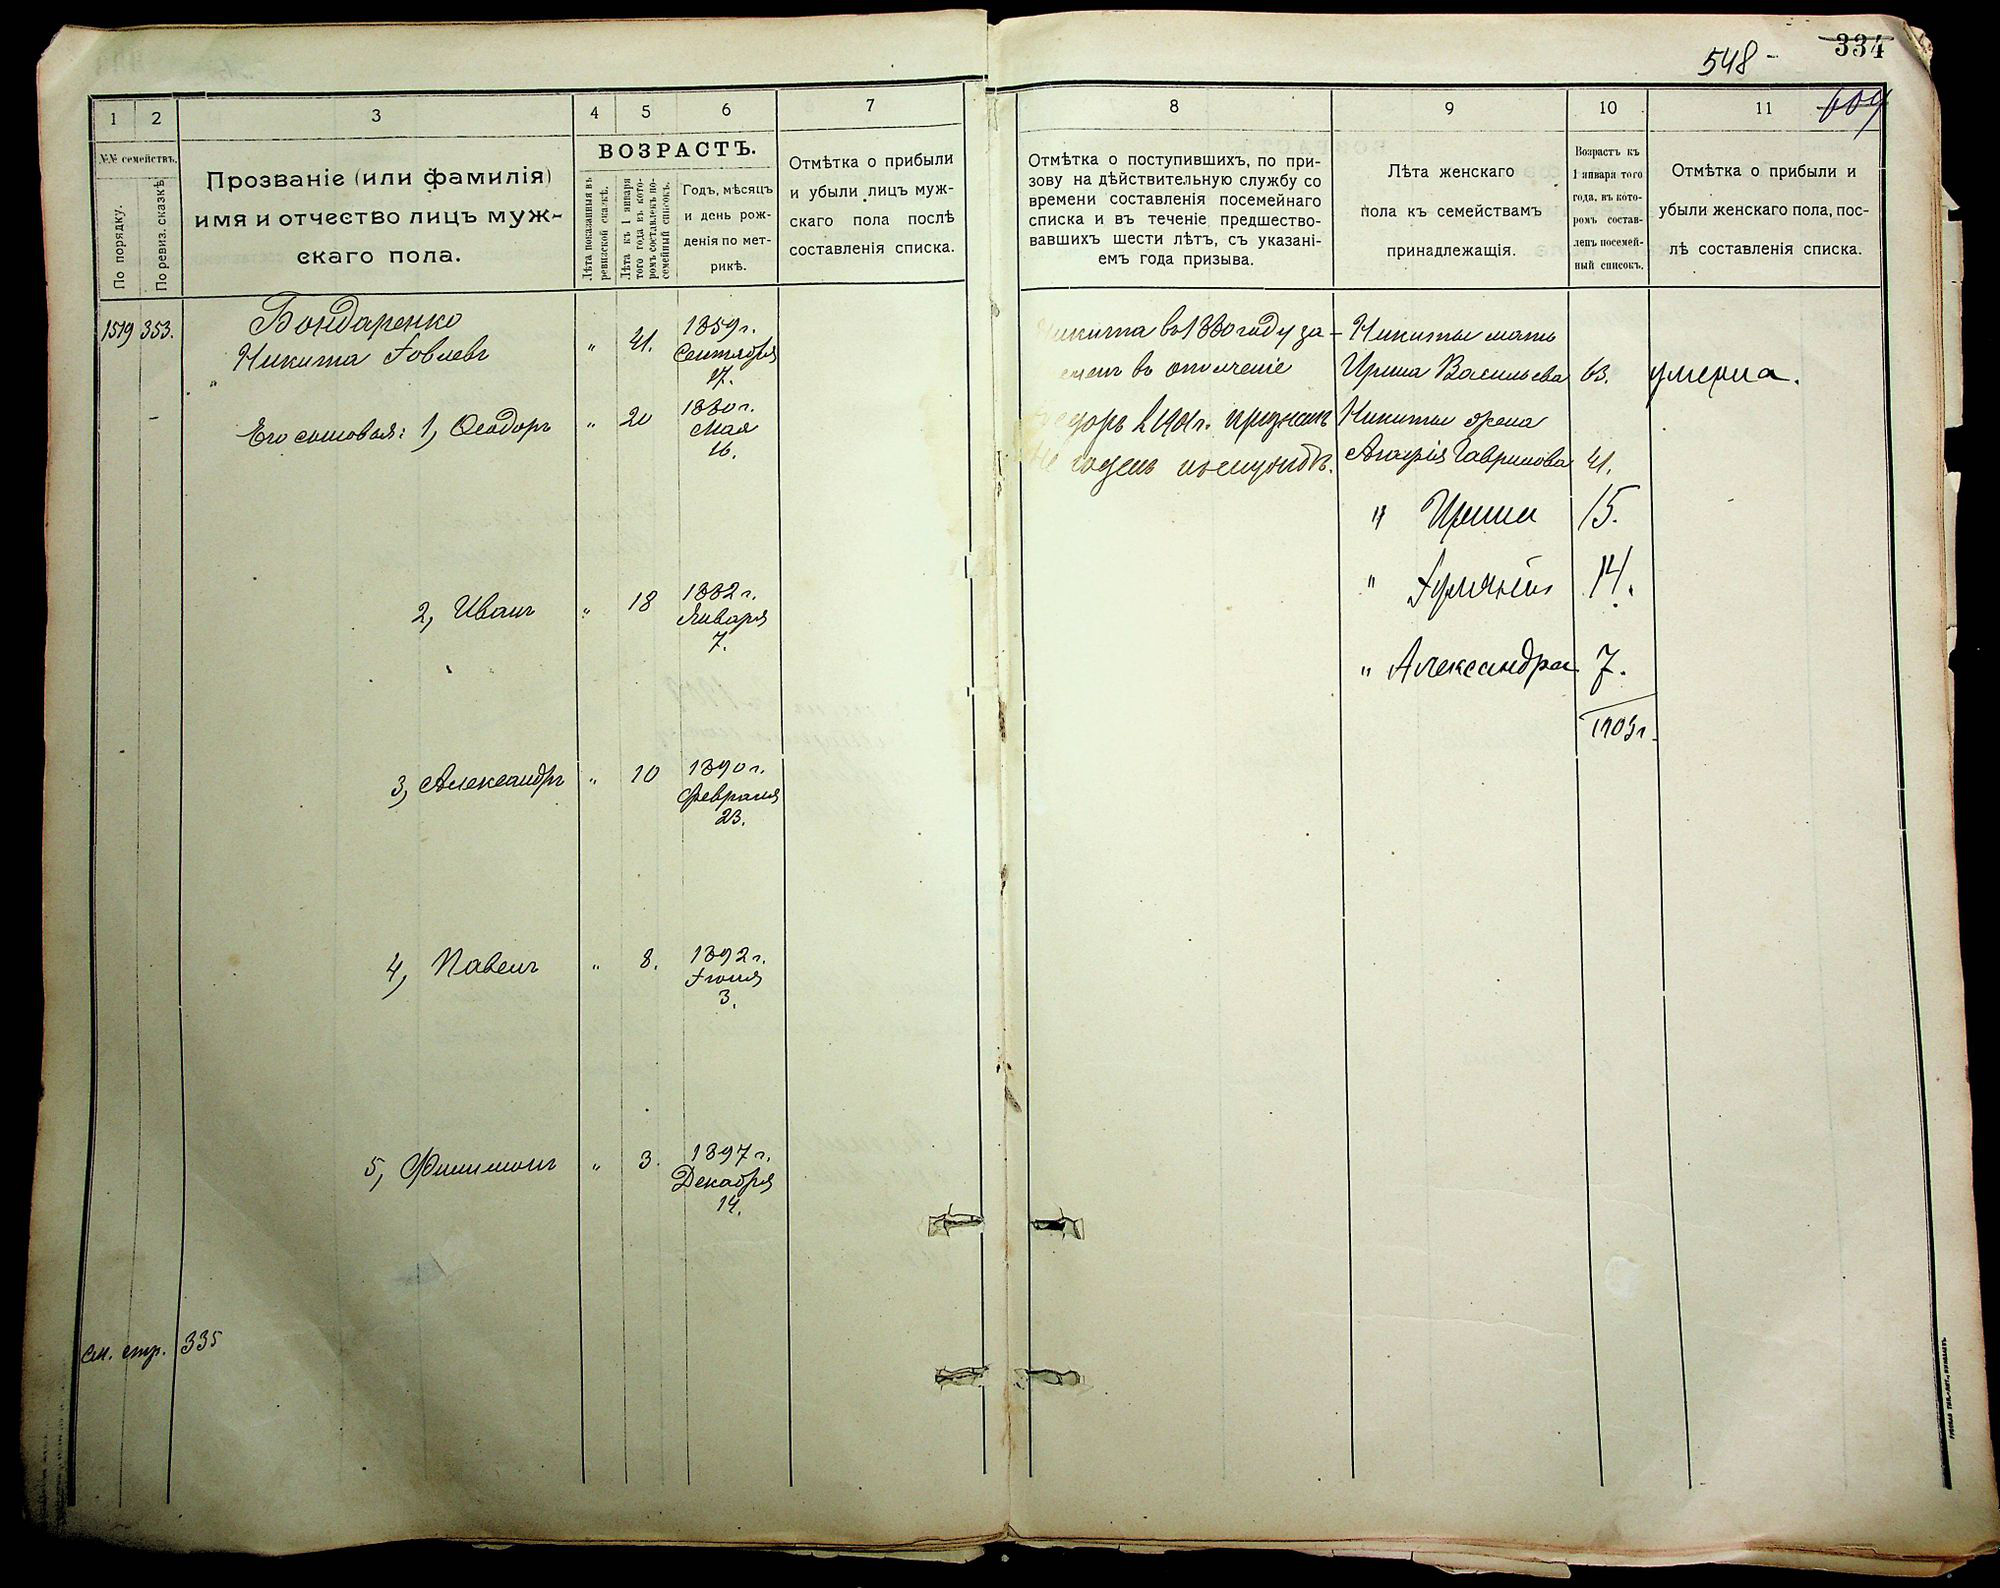 548 -
334
604
1
2
3
4
5
6
7
№№ семействъ.
По порядку.
По ревиз. сказкѣ
Прозваніе (или фамилія)
имя и отчество лицъ муж-
скаго пола.
ВОЗРАСТЪ.
Лѣта показанныя въ
ревизской сказкѣ.
Лѣта къ 1 января
того года въ кото-
ромъ составленъ по-
семейный списокъ.
Годъ, мѣсяцъ
и день рож-
денія по мет-
рикѣ.
Отмѣтка о прибыли
и убыли лицъ муж-
скаго пола послѣ
составленія списка.
1519 353.
Бондаренко
Никита Іовлевъ
" 41.
1859 г.
Сентября
17.
Его сыновья: 1, Ѳеодоръ " 20
1880 г.
Мая
16.
2, Иванъ " 18
1882 г.
Января
7.
3, Александръ " 10
1890 г.
Февраля
23.
4, Павелъ " 8.
1892 г.
Іюня
3.
5, Филимонъ " 3.
1897 г.
Декабря
14.
см. стр. 335
8
9
10
11
Отмѣтка о поступившихъ, по при-
зову на дѣйствительную службу со
времени составленія посемейнаго
списка и въ теченіе предшество-
вавшихъ шести лѣтъ, съ указані-
емъ года призыва.
Лѣта женскаго
пола къ семействамъ
принадлежащія.
Возрастъ къ
1 января того
года, въ кото-
ромъ состав-
ленъ посемей-
ный списокъ.
Отмѣтка о прибыли и
убыли женскаго пола, пос-
лѣ составленія списка.
Никита въ 1880 году за-
въ ополченіе
Ѳедоръ в 1901 г. признанъ
не годенъ
Никиты мать
Ирина Васильева 63. умерла.
Никиты жена
Агафія Гаврилова 41.
" Ирина 15.
" 14.
" Александра 7.
1905 г.